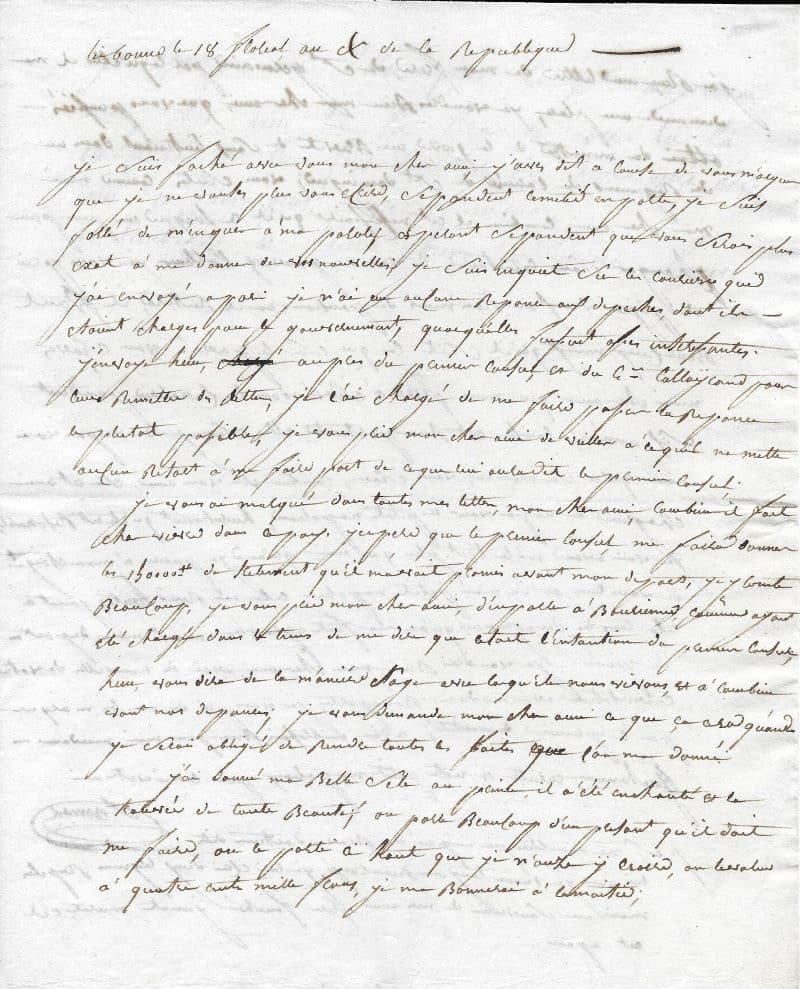 lisbonne le 18 floreal an X de la Republique
je suis faché avec vous mon cher ami, j'aves dit a cause de vous marquer
que je ne voules plus vous ecrire, cependent l'amitié en porte, je suis
forcé de menquer à ma parole esperant cependent que vous serais plus
exat à me donner de vos nouvelles, je suis inquiet sur les couriers que
j'ai envoyé a paris je n'ai eu aucune reponce aux depeches dont ils
etaint charges pour le gouvernement, quoiquelles fussent asses intersantes.
j'envoye aupres du premier consul et du Cen Talleyrand pour
leur remettre des lettres, je l'ai chargé de me faire passer la reponce
le plutot possible, je vous prie mon cher ami de veiller à ce qu'il ne mette
aucun retart à me faire part de ce que lui aura dit le premier consul.
je vous ai marqué dans toutes mes lettres, mon cher ami, combien il fait
cher vivre dans ce pays. j'espere que le premier consul me faira donner
les de qu'il m'avait promis avant mon depart, je y compte
Beaucoup, je vous prie mon cher ami, d'en parler à Bourienne, comme ayant
été chargé dans le tems de me dire que c'etait l'intantion du premier consul,
vous dira de la maniere sage avec laquele nous vivons et à combien
vont nos depances, je vous demande mon cher ami ce que ça cera quand
je serai obligé de rendre toutes les faites que l'on me donne
j'ai donné ma Belle au prince, il a été enchanté et la
trouvée de toute Beauté, on parle Beaucoup d'un presant qu'il doit
me faire, on le porte si haut que je n'ause y croire, on
à quatre cents mille frans, je me Bornerai à la moitié,